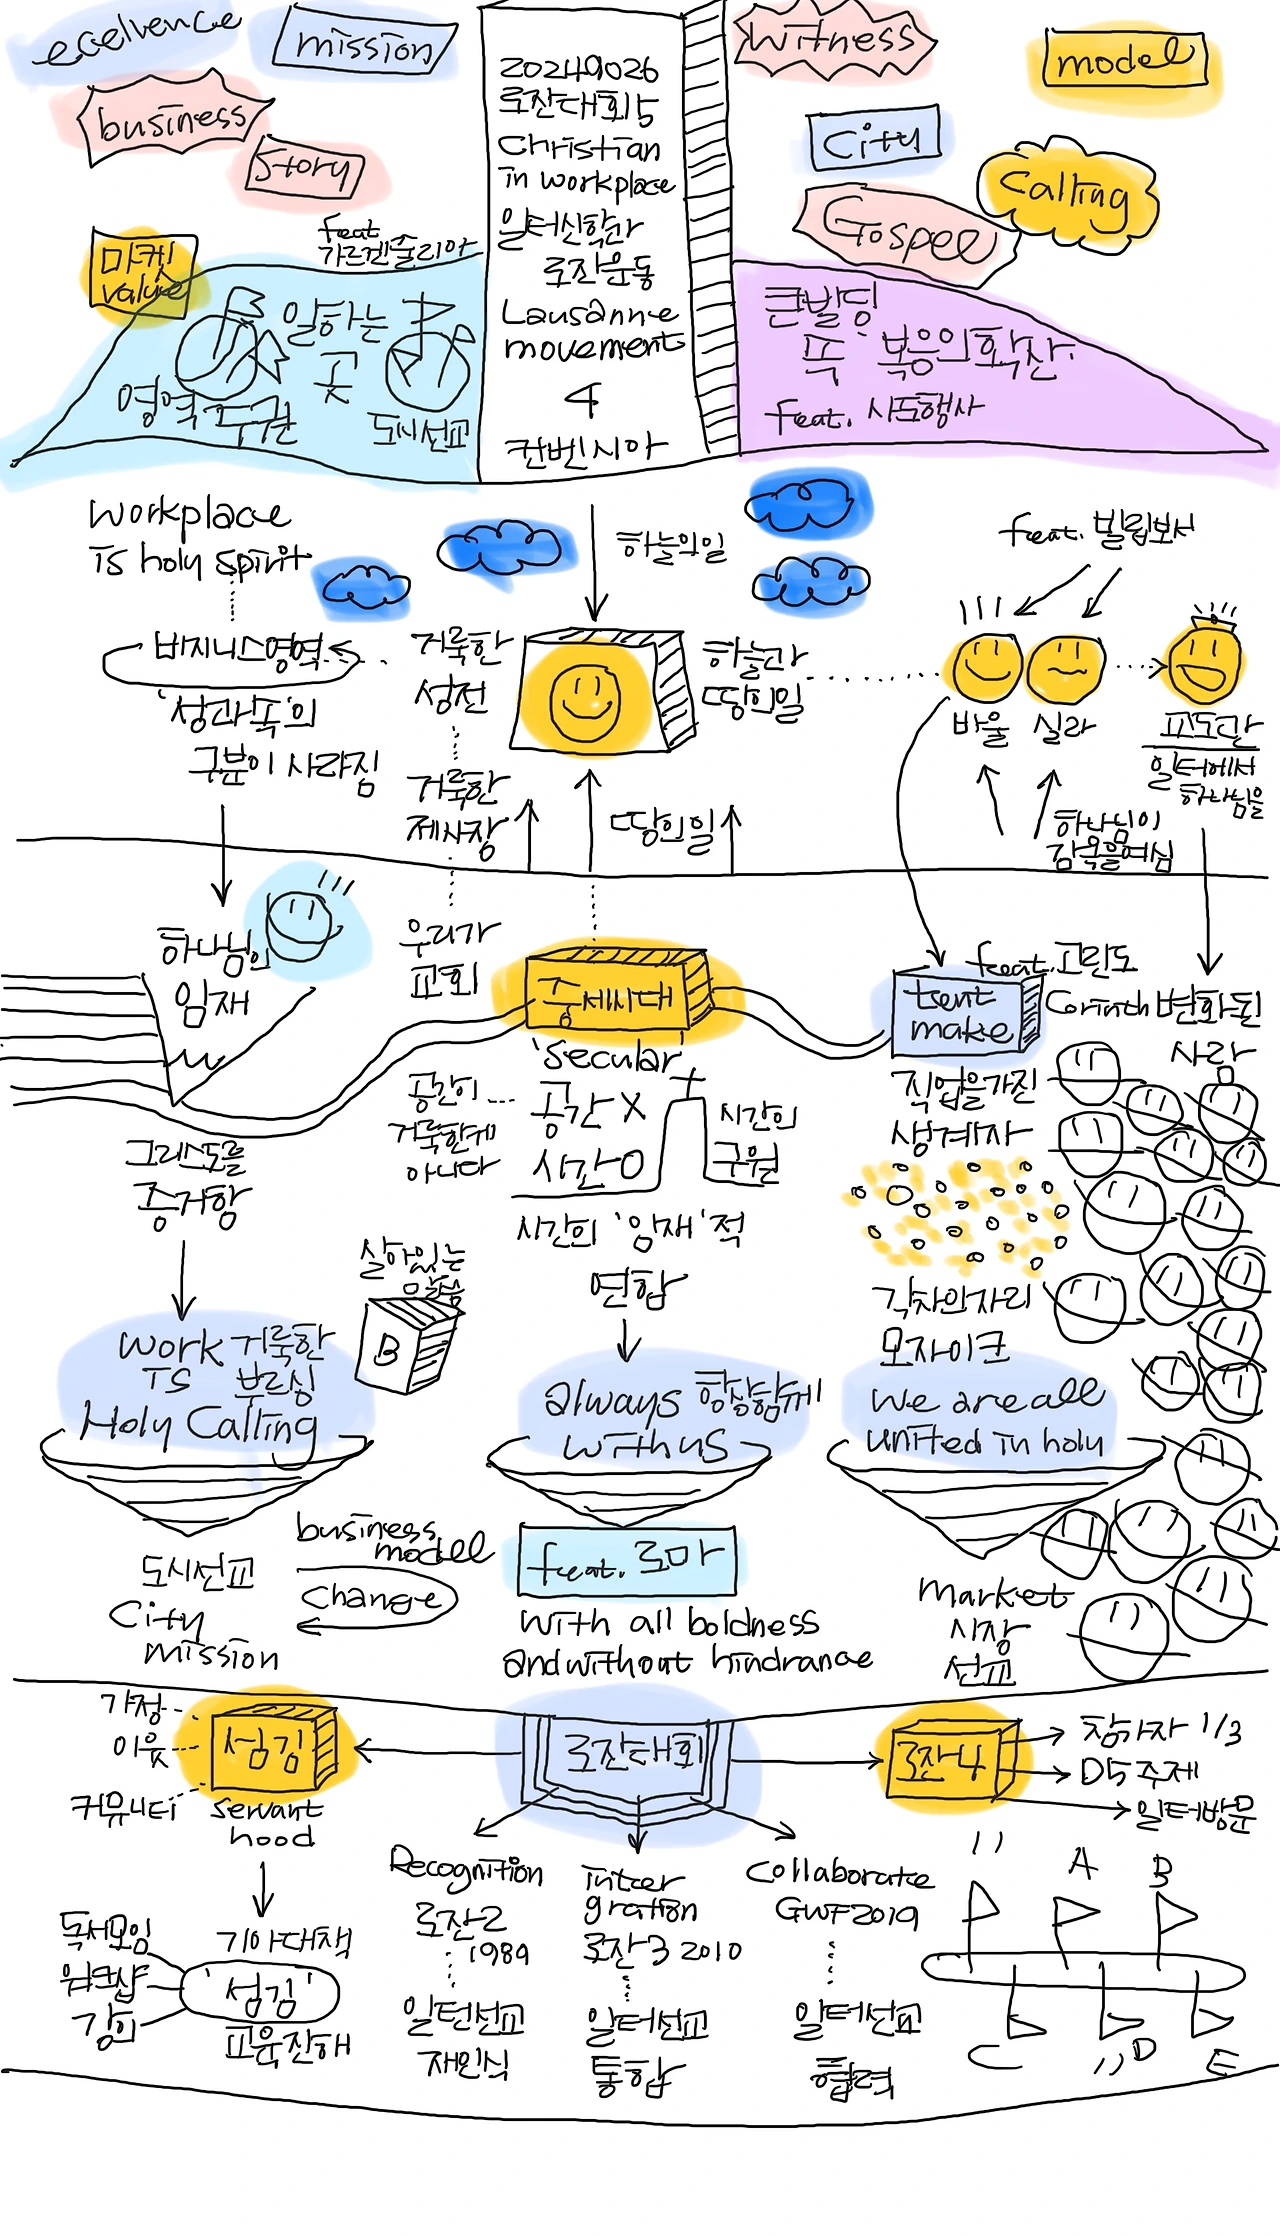 ecelvence
mission
business
story
20249026
로잔대회5
Christian
in workplace
일터신학과
로잔운동
Lausanne
movement
4
컨벤시아
witness
model
city
calling
Gospel
마켓
value
feat
일하는
곳
영역주권
도시선교
큰빌딩
뜩 복음의확산
feat. 사도행사
workplace
is holy spirit
비지니스영역
'성과속'의
구분이 사라짐
하늘의일
거룩한
성전
거룩한
제사장
우리가
교회
하늘과
땅의일
땅의일
feat. 빌립보서
바울
실라
일터에서
하나님을
하나님이
감옥을여심
하나님의
임재
그리스도를
증거함
중세시대
'secular'
공간이
거룩한게
아니다
공간 X
시간 O
시간의
구원
시간의 '임재'적
연합
tent
make
feat. 고린도
Corinth 변화된
사람
직업을가진
생계자
각자의자리
모자이크
살아있는
말씀
B
work 거룩한
is 부르심
Holy Calling
always 항상함께
with us
we are all
united in holy
도시선교
City
mission
business
model
change
feat. 로마
with all boldness
and without hindrance
market
시장
선교
가정
이웃
커뮤니티
섬김
servant
hood
로잔대회
로잔4
참가자 1/3
D5 주제
일터방문
독서모임
워크샵
강의
기아대책
'섬김'
교육진해
Recognition
로잔2
1989
일터선교
재인식
Inteer
gration
로잔3 2010
일터선교
통합
Collaborate
GWF2019
일터선교
협력
A
B
C
D
E